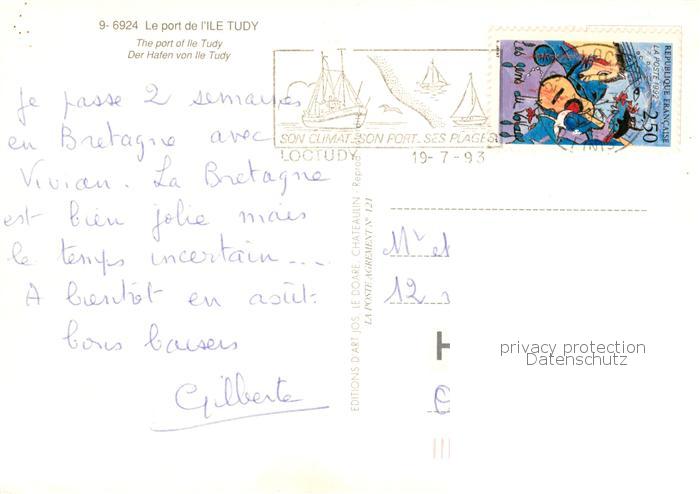 9- 6924 Le port de l'ILE TUDY
The port of Ile Tudy
Der Hafen von Ile Tudy
Je passe 2 semaines
en Bretagne avec
Vivian. La Bretagne
est bien jolie mais
le temps incertain....
A bientôt en août.
bons baisers
Gilberte
SON CLIMAT_SON PORT_SES PLAGES
LOCTUDY
19-7-93
REPUBLIQUE FRANÇAISE
LA POSTE 1992
2,50
EDITIONS D'ART JOS, LE DOARE, CHATEAULIN - Reprod
LA POSTE AGREMENT N° 121
Mr et
12
privacy protection
Datenschutz